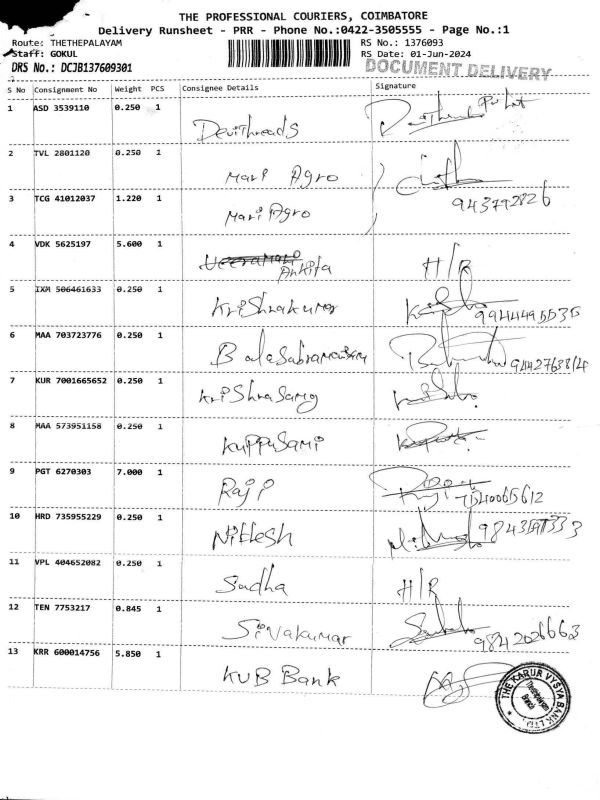 THE PROFESSIONAL COURIERS, COIMBATORE
Delivery Runsheet - PRR - Phone No.:0422-3505555 - Page No.:1
Route: THETHEPALAYAM RS No.: 1376093
Staff: GOKUL RS Date: 01-Jun-2024
DRS No.: DCJB137609301 DOCUMENT DELIVERY
S No Consignment No Weight PCS Consignee Details Signature
1 ASD 3539110 0.250 1 DeviThreads
2 TVL 2801120 0.250 1 Mari Agro
3 TCG 41012037 1.220 1 Mari Agro
4 VDK 5625197 5.600 1 Ankita H/R
5 IXM 506461633 0.250 1 Krishnakumar
6 MAA 703723776 0.250 1 Balasubramaniam
7 KUR 7001665652 0.250 1 KriShnaSamy
8 MAA 573951158 0.250 1 KuppuSami
9 PGT 6270303 7.000 1 Raji
10 HRD 735955229 0.250 1 Nitlesh
11 VPL 404652082 0.250 1 Sudha H/R
12 TEN 7753217 0.845 1 Sivakumar 9842026663
13 KRR 600014756 5.850 1 KVB Bank
THE KARUR VYSYA BANK LTD.